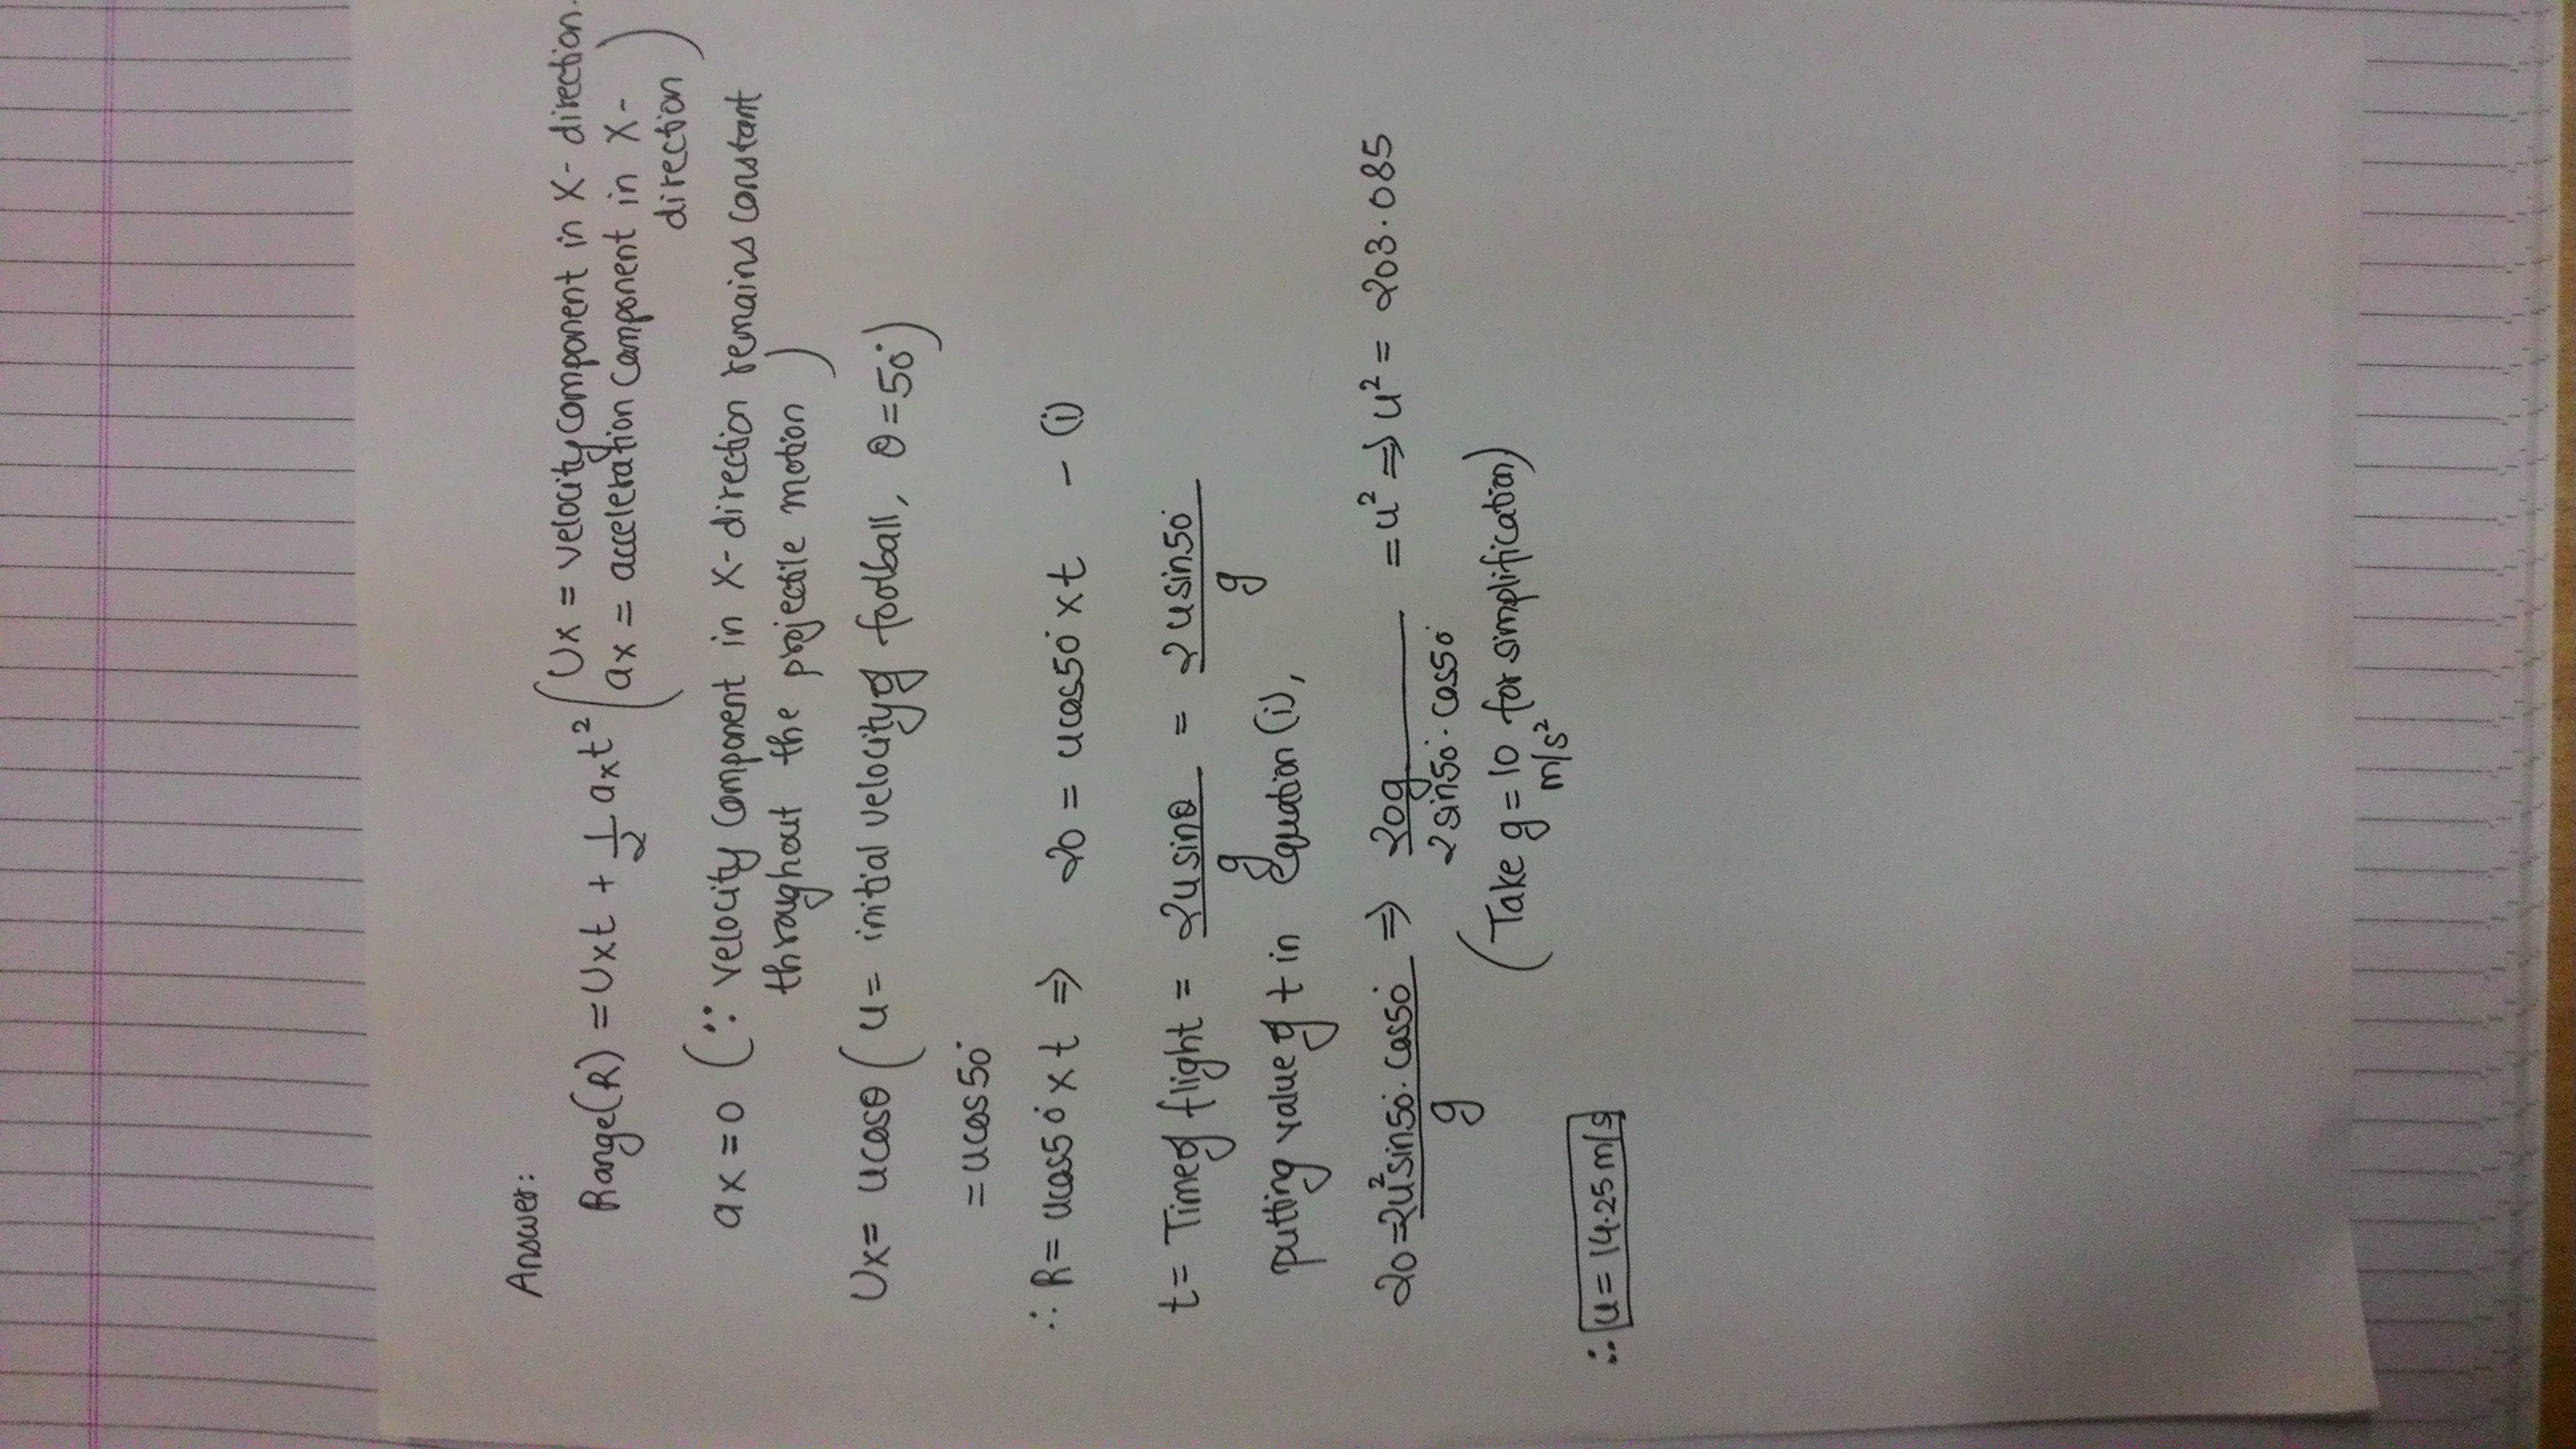 Answer:
Range(R) = Uxt + 1/2 axt² (Ux = velocity component in X-direction.
ax = acceleration component in X-
direction)
ax = 0 (∵ velocity component in X-direction remains constant
throughout the projectile motion)
Ux = ucosθ (u = initial velocity of football, θ = 50°)
= ucos50°
∴ R = ucos50° x t ⇒ 20 = ucos50° x t - (i)
t = Time of flight = 2usinθ/g = 2usin50°/g
putting value of t in equation (i),
20 = 2u²sin50°.cos50°/g ⇒ 20g/2sin50°.cos50° = u² ⇒ u² = 203.085
(Take g = 10 for simplification)
m/s²
∴ u = 14.25 m/s